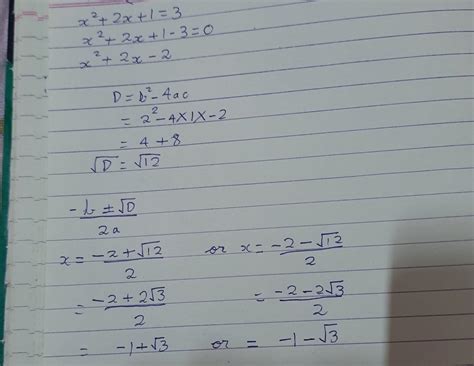 x² + 2x + 1 = 3
x² + 2x + 1 - 3 = 0
x² + 2x - 2
D = b² - 4ac
= 2² - 4 X 1 X - 2
= 4 + 8
√D = √12
-b ± √D / 2a
x = -2 + √12 / 2 or x = -2 - √12 / 2
= -2 + 2√3 / 2 = -2 - 2√3 / 2
= -1 + √3 or = -1 - √3